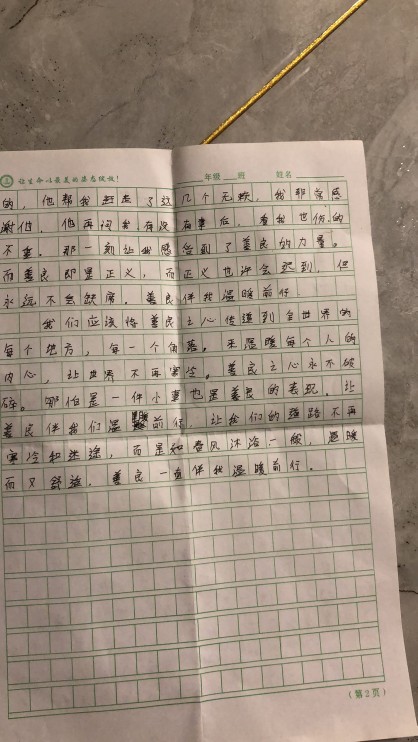 让生命以最美的姿态绽放!
年级 班 姓名
的,他帮我赶走了这几个无赖,我非常感
谢他,他再问我有没有事后,看我也伤的
不重。那一刻让我感受到了善良的力量。
而善良即是正义,而正义也许会迟到,但
永远不会缺席。善良伴我温暖前行
我们应该将善良之心传递到全世界的
每个地方,每一个角落。来温暖每个人的
内心,让世界不再寒冷。善良之心永不破
碎。哪怕是一件小事也是善良的表现。让
善良伴我们温暖前行,让我们的道路不再
寒冷和迷途,而是和春风沐浴一般,温暖
而又舒适。善良一直伴我温暖前行。
(第2页)